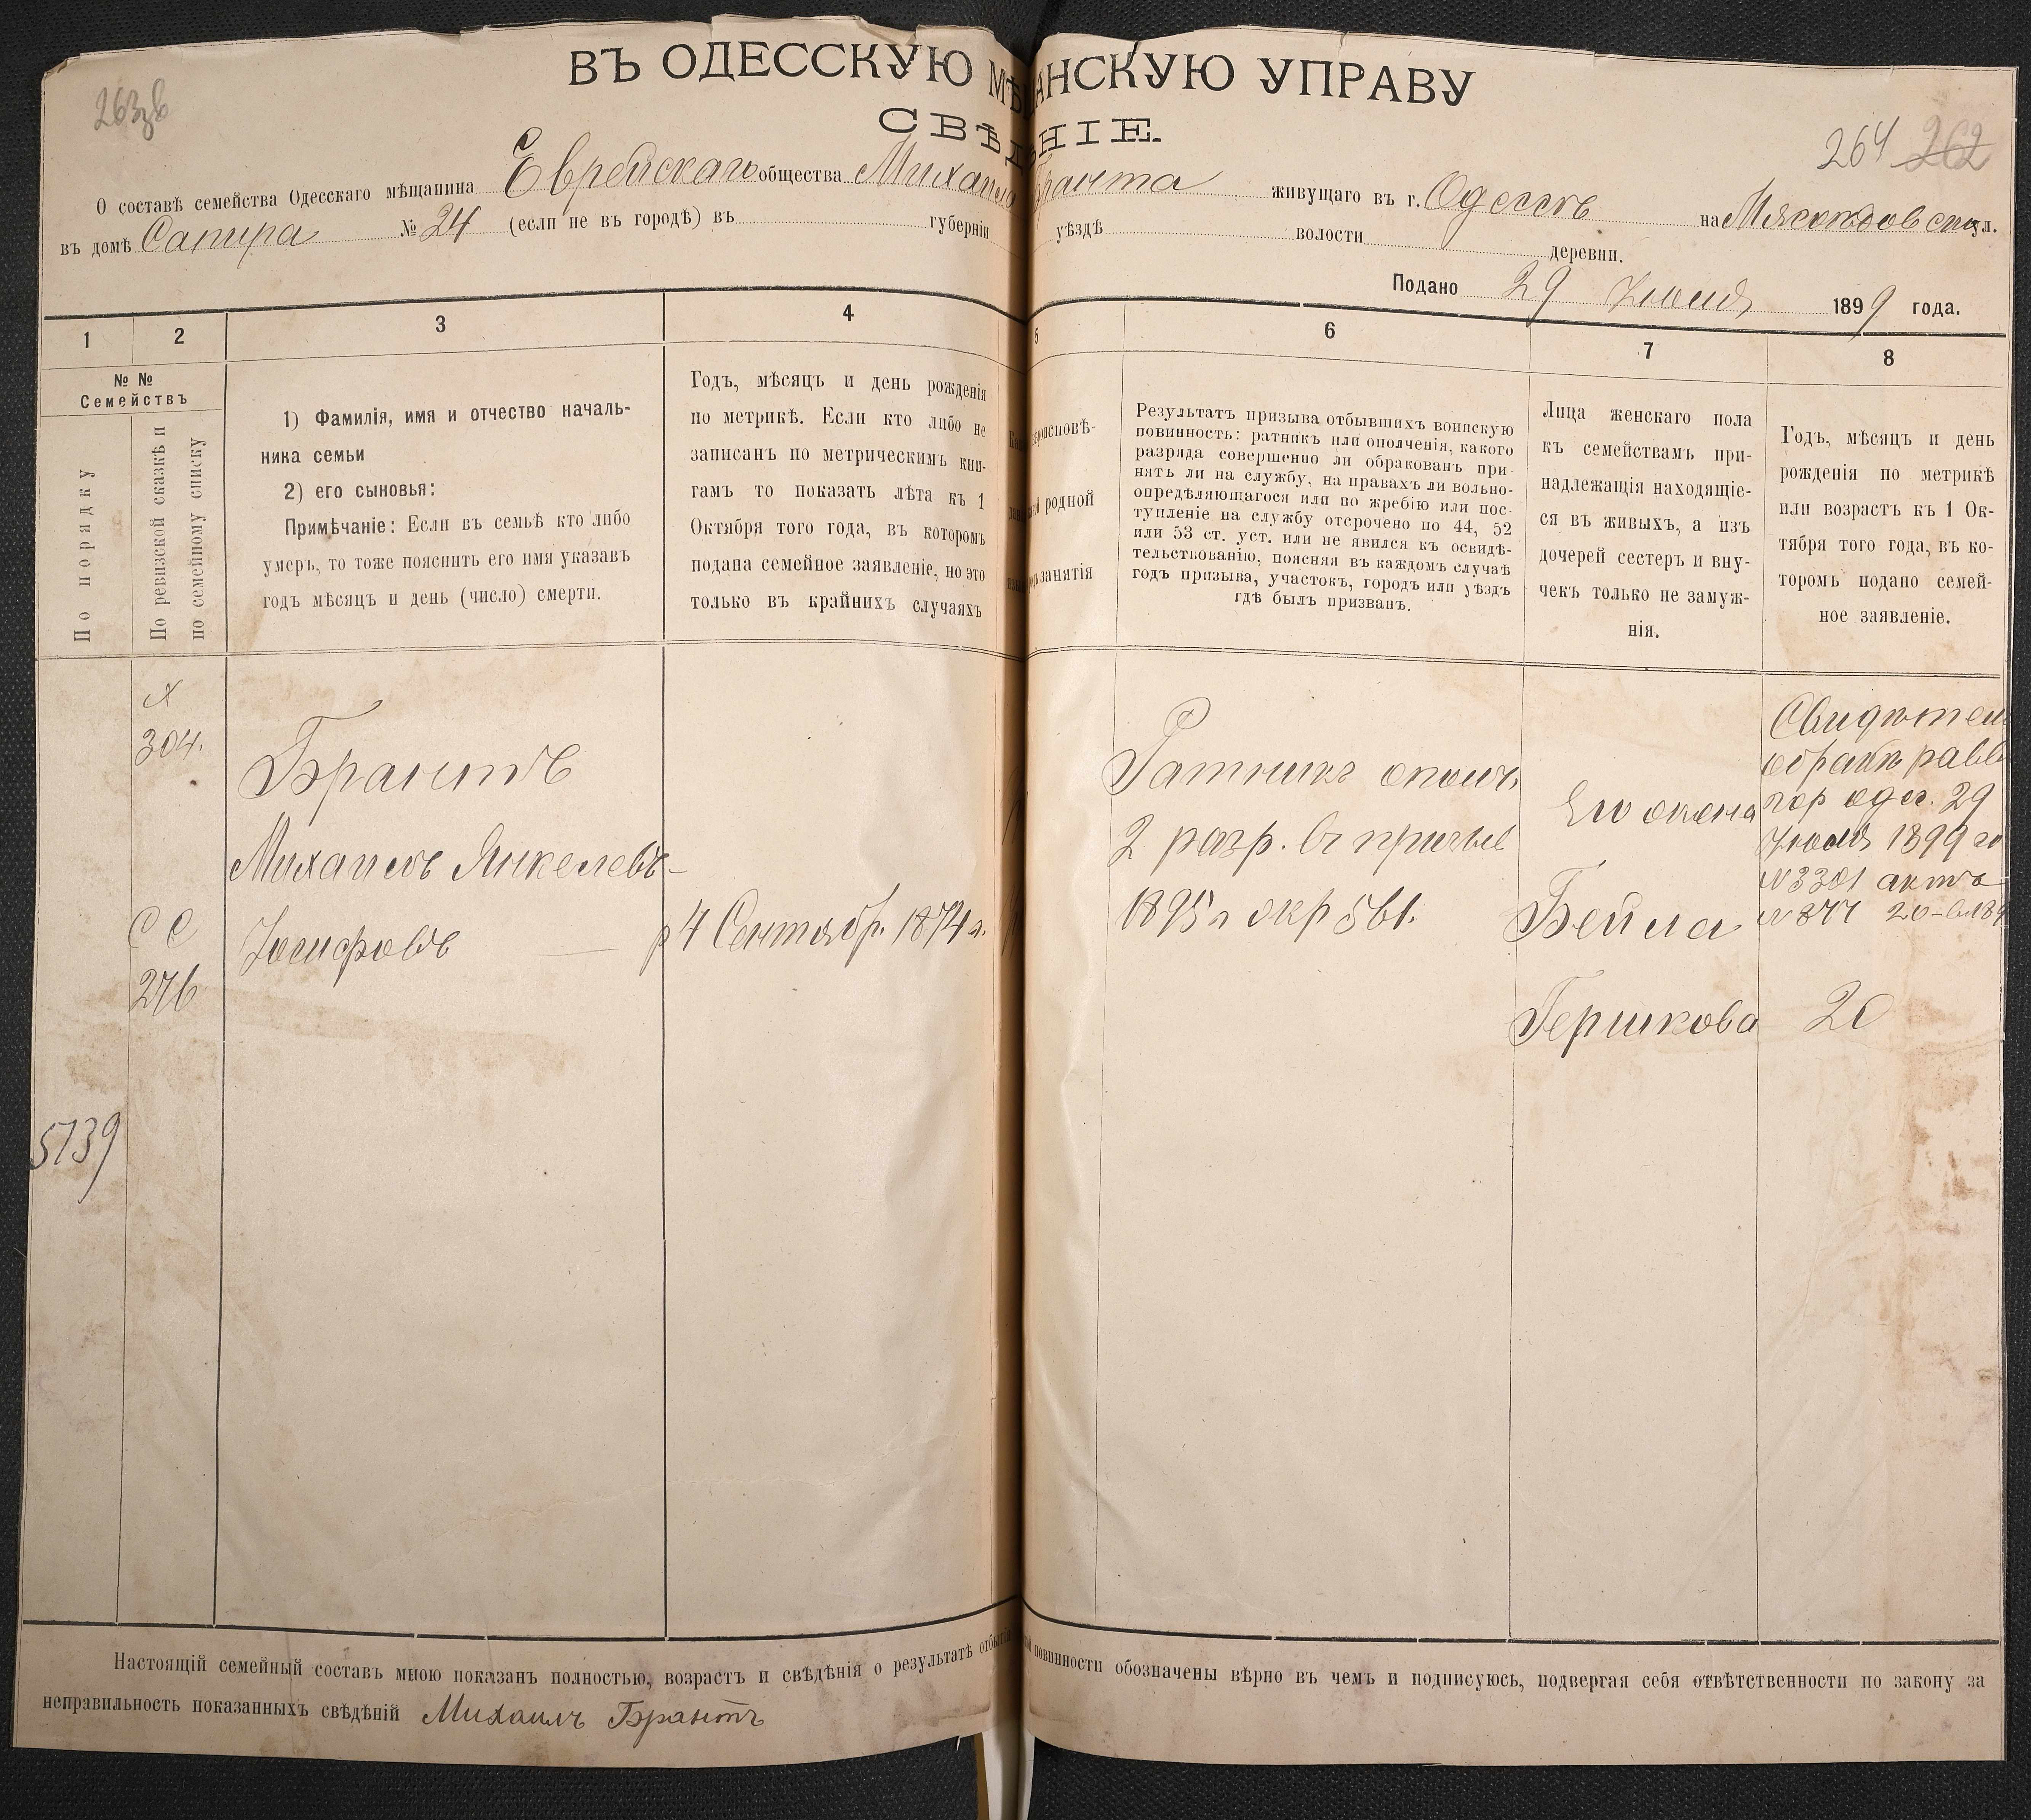 ВЪ ОДЕССКУЮ МѢ АНСКУЮ УПРАВУ
СВѢД НІЕ.
264 262
О составѣ семейства Одесскаго мѣщанина Еврейскаго общества Михаила Бранта живущаго въ г. Одессѣ на Мясоѣдовской ул.
въ домѣ Сапира № 24 (если не въ городѣ) въ губерніи уѣздѣ волости деревни.
Подано 29 Іюля 1899 года.
1 2 3 4 5 6 7 8
№ №
Семействъ
По порядку
По ревизской сказкѣ и
по семейному списку
1) Фамилія, имя и отчество началь-
ника семьи
2) его сыновья:
Примѣчаніе: Если въ семьѣ кто либо
умеръ, то тоже пояснить его имя указавъ
годъ мѣсяцъ и день (число) смерти.
Годъ, мѣсяцъ и день рожденія
по метрикѣ. Если кто либо не
записанъ по метрическимъ кни-
гамъ то показать лѣта къ 1
Октября того года, въ которомъ
подана семейное заявленіе, но это
только въ крайнихъ случаяхъ
роисповѣ-
родной
занятія
Результатъ призыва отбывшихъ воинскую
повинность: ратникъ или ополченія, какого
разряда совершенно ли обракованъ при-
нятъ ли на службу, на правахъ ли вольно-
опредѣляющагося или по жребію или пос-
тупленіе на службу отсрочено по 44, 52
или 53 ст. уст. или не явился къ освидѣ-
тельствованію, поясняя въ каждомъ случаѣ
годъ призыва, участокъ, городъ или уѣздъ
гдѣ былъ призванъ.
Лица женскаго пола
къ семействамъ при-
надлежащія находящіе-
ся въ живыхъ, а изъ
дочерей сестеръ и вну-
чекъ только не замуж-
нія.
Годъ, мѣсяцъ и день
рожденія по метрикѣ
или возрастъ къ 1 Ок-
тября того года, въ ко-
торомъ подано семей-
ное заявленіе.
304.
Брантъ
Михаилъ Янкелевъ-
Іосифовъ
СС
276
5139
р 4 Сентябр. 1874 г.
Ратникъ ополч.
2 разр. въ призыв
1895 г окр
Его жена
Бейла
Гершкова
Свидѣтел
о бракѣ равв
гор одес. 29
Іюля 1899 го
№ 3301 актъ
№ 877
20
Настоящій семейный составъ мною показанъ полностью, возрастъ и свѣдѣнія о результатѣ отбы повинности обозначены вѣрно въ чемъ и подписуюсь, подвергая себя отвѣтственности по закону за
неправильность показанныхъ свѣдѣній Михаилъ Брантъ